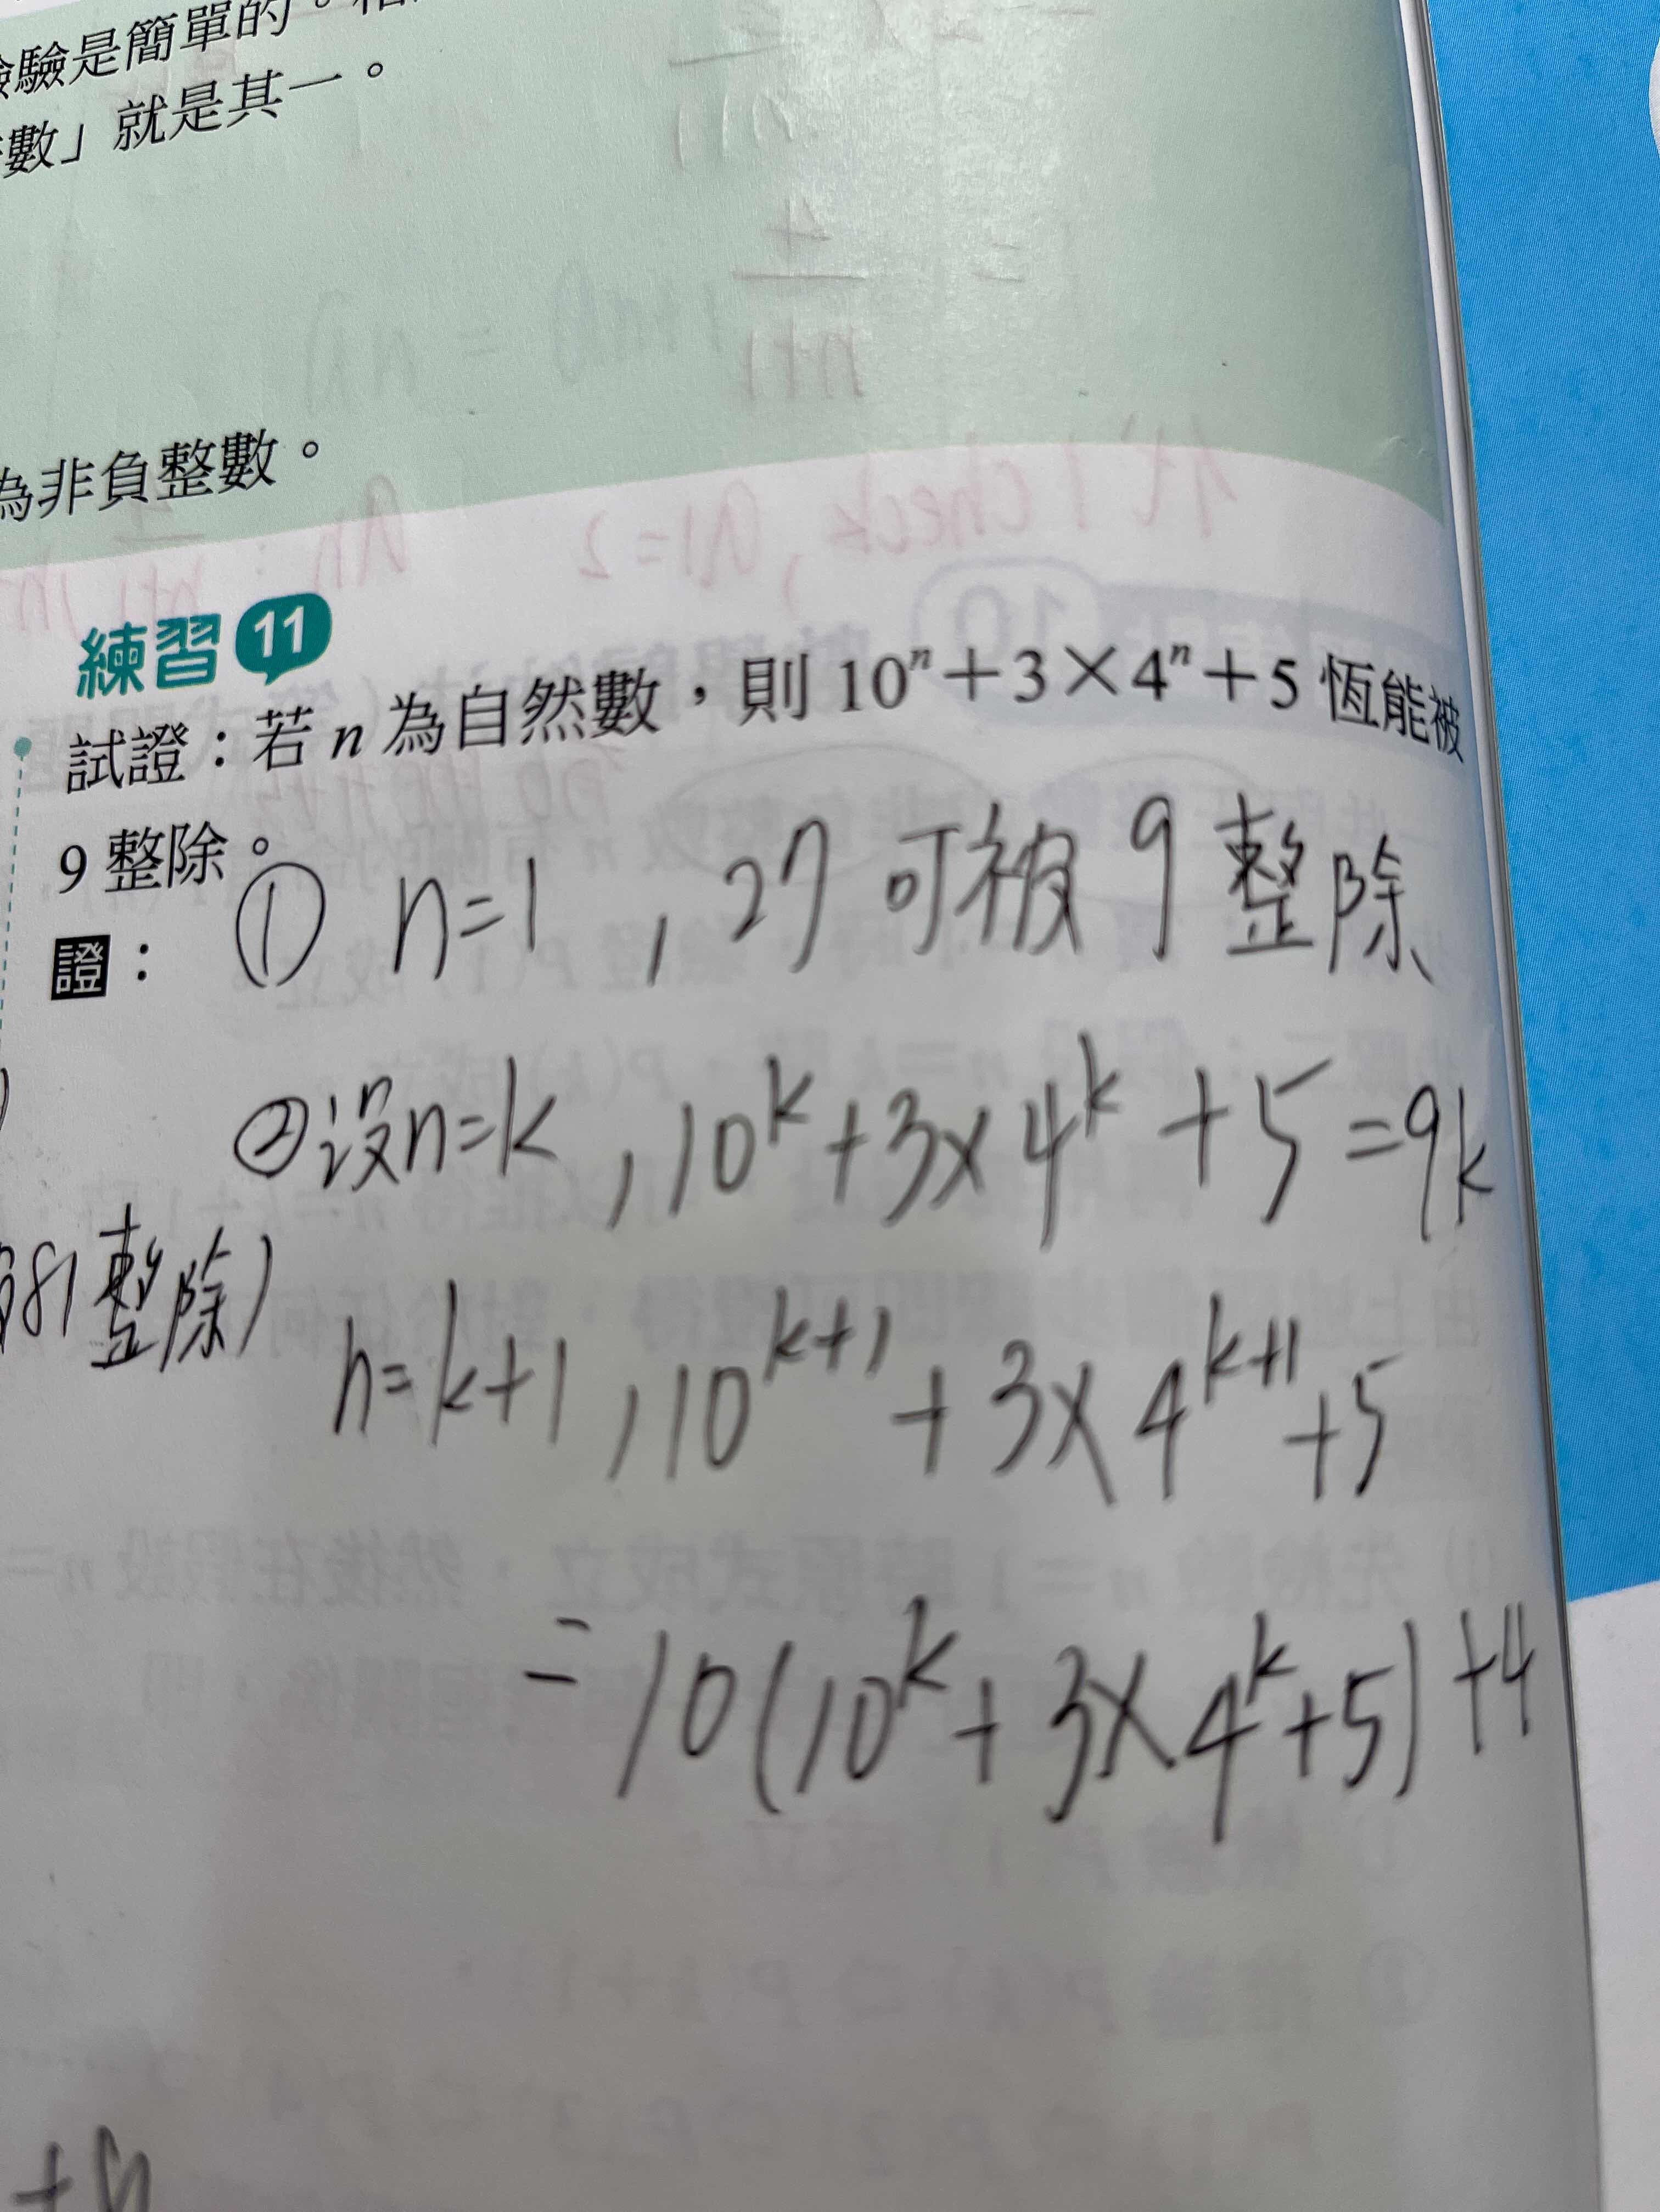 驗是簡單的。
數」就是其一。
為非負整數。
練習 11
試證：若 n 為自然數，則 10ⁿ＋3×4ⁿ＋5 恆能被
9 整除。
證：
① n=1 , 27 可被 9 整除
②設n=k , 10^k+3×4^k+5=9k
81整除)
n=k+1 , 10^(k+1)+3×4^(k+1)+5
=10(10^k+3×4^k+5)+4